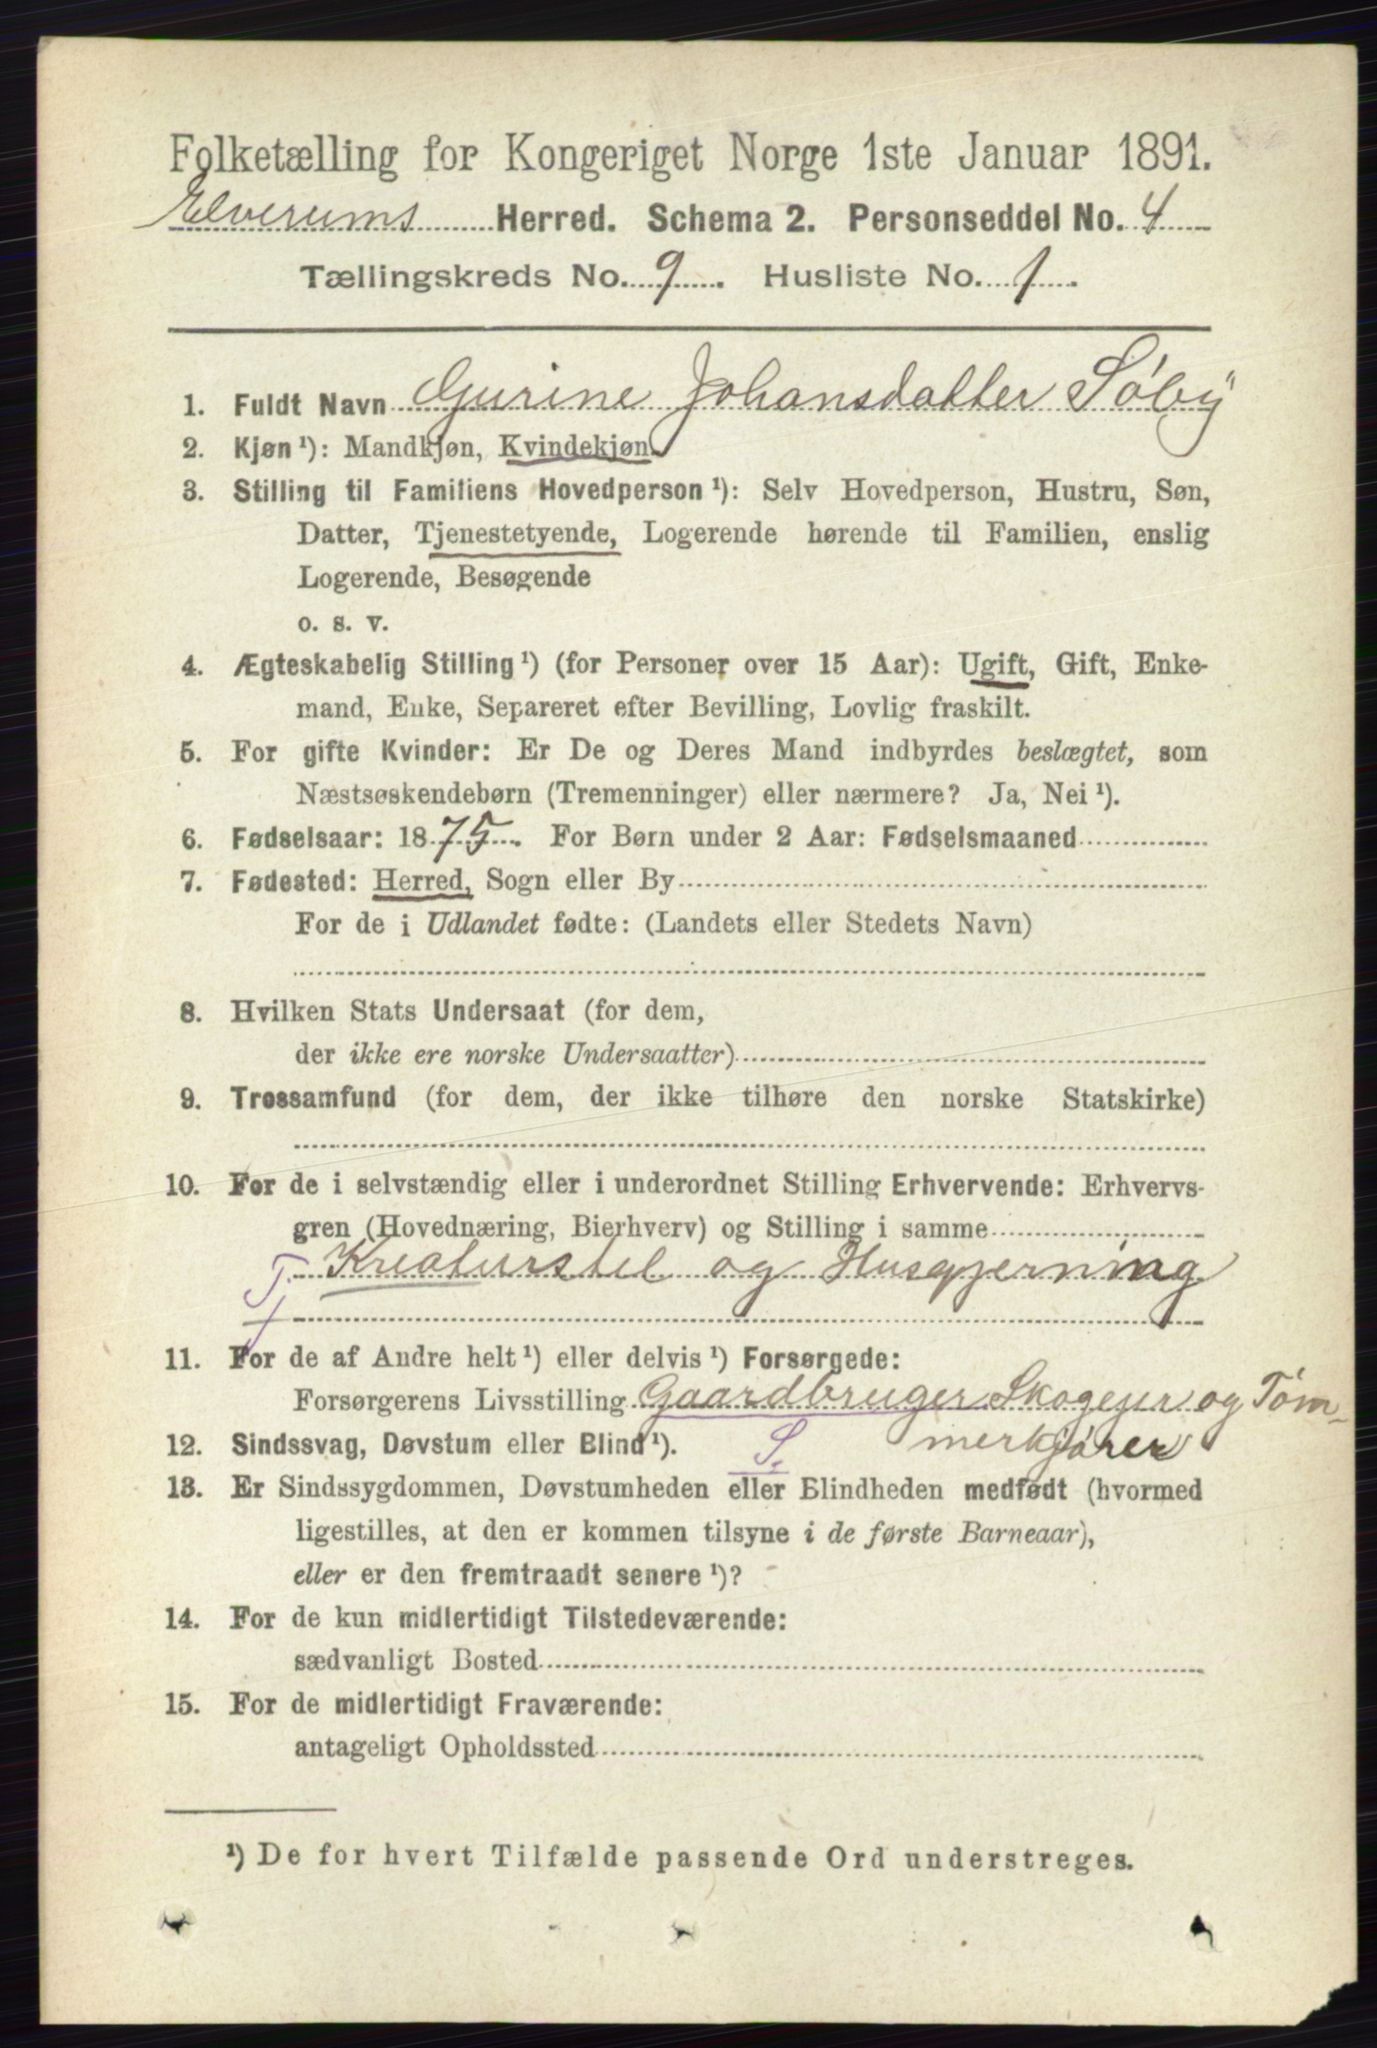 Folketælling for Kongeriget Norge 1ste Januar 1891.
Elverums Herred. Schema 2. Personseddel No. 4
Tællingskreds No. 9. Husliste No. 1.
1. Fuldt Navn Gurine Johansdatter Söby
2. Kjøn ¹): Mandkjøn, Kvindekjøn.
3. Stilling til Familiens Hovedperson ¹): Selv Hovedperson, Hustru, Søn,
Datter, Tjenestetyende, Logerende hørende til Familien, enslig
Logerende, Besøgende
o. s. v.
4. Ægteskabelig Stilling ¹) (for Personer over 15 Aar): Ugift, Gift, Enke-
mand, Enke, Separeret efter Bevilling, Lovlig fraskilt.
5. For gifte Kvinder: Er De og Deres Mand indbyrdes beslægtet, som
Næstsøskendebørn (Tremenninger) eller nærmere? Ja, Nei ¹).
6. Fødselsaar: 1875. For Børn under 2 Aar: Fødselsmaaned
7. Fødested: Herred, Sogn eller By
For de i Udlandet fødte: (Landets eller Stedets Navn)
8. Hvilken Stats Undersaat (for dem,
der ikke ere norske Undersaatter)
9. Trossamfund (for dem, der ikke tilhøre den norske Statskirke)
10. For de i selvstændig eller i underordnet Stilling Erhvervende: Erhvervs-
gren (Hovednæring, Bierhverv) og Stilling i samme
T. Kreaturstel og Husgjerning
11. For de af Andre helt ¹) eller delvis ¹) Forsørgede:
Forsørgerens Livsstilling Gaardbruger Skogejer og Töm-
12. Sindssvag, Døvstum eller Blind ¹). S. merkjörer
13. Er Sindssygdommen, Døvstumheden eller Blindheden medfødt (hvormed
ligestilles, at den er kommen tilsyne i de første Barneaar),
eller er den fremtraadt senere ¹)?
14. For de kun midlertidigt Tilstedeværende:
sædvanligt Bosted
15. For de midlertidigt Fraværende:
antageligt Opholdssted
¹) De for hvert Tilfælde passende Ord understreges.